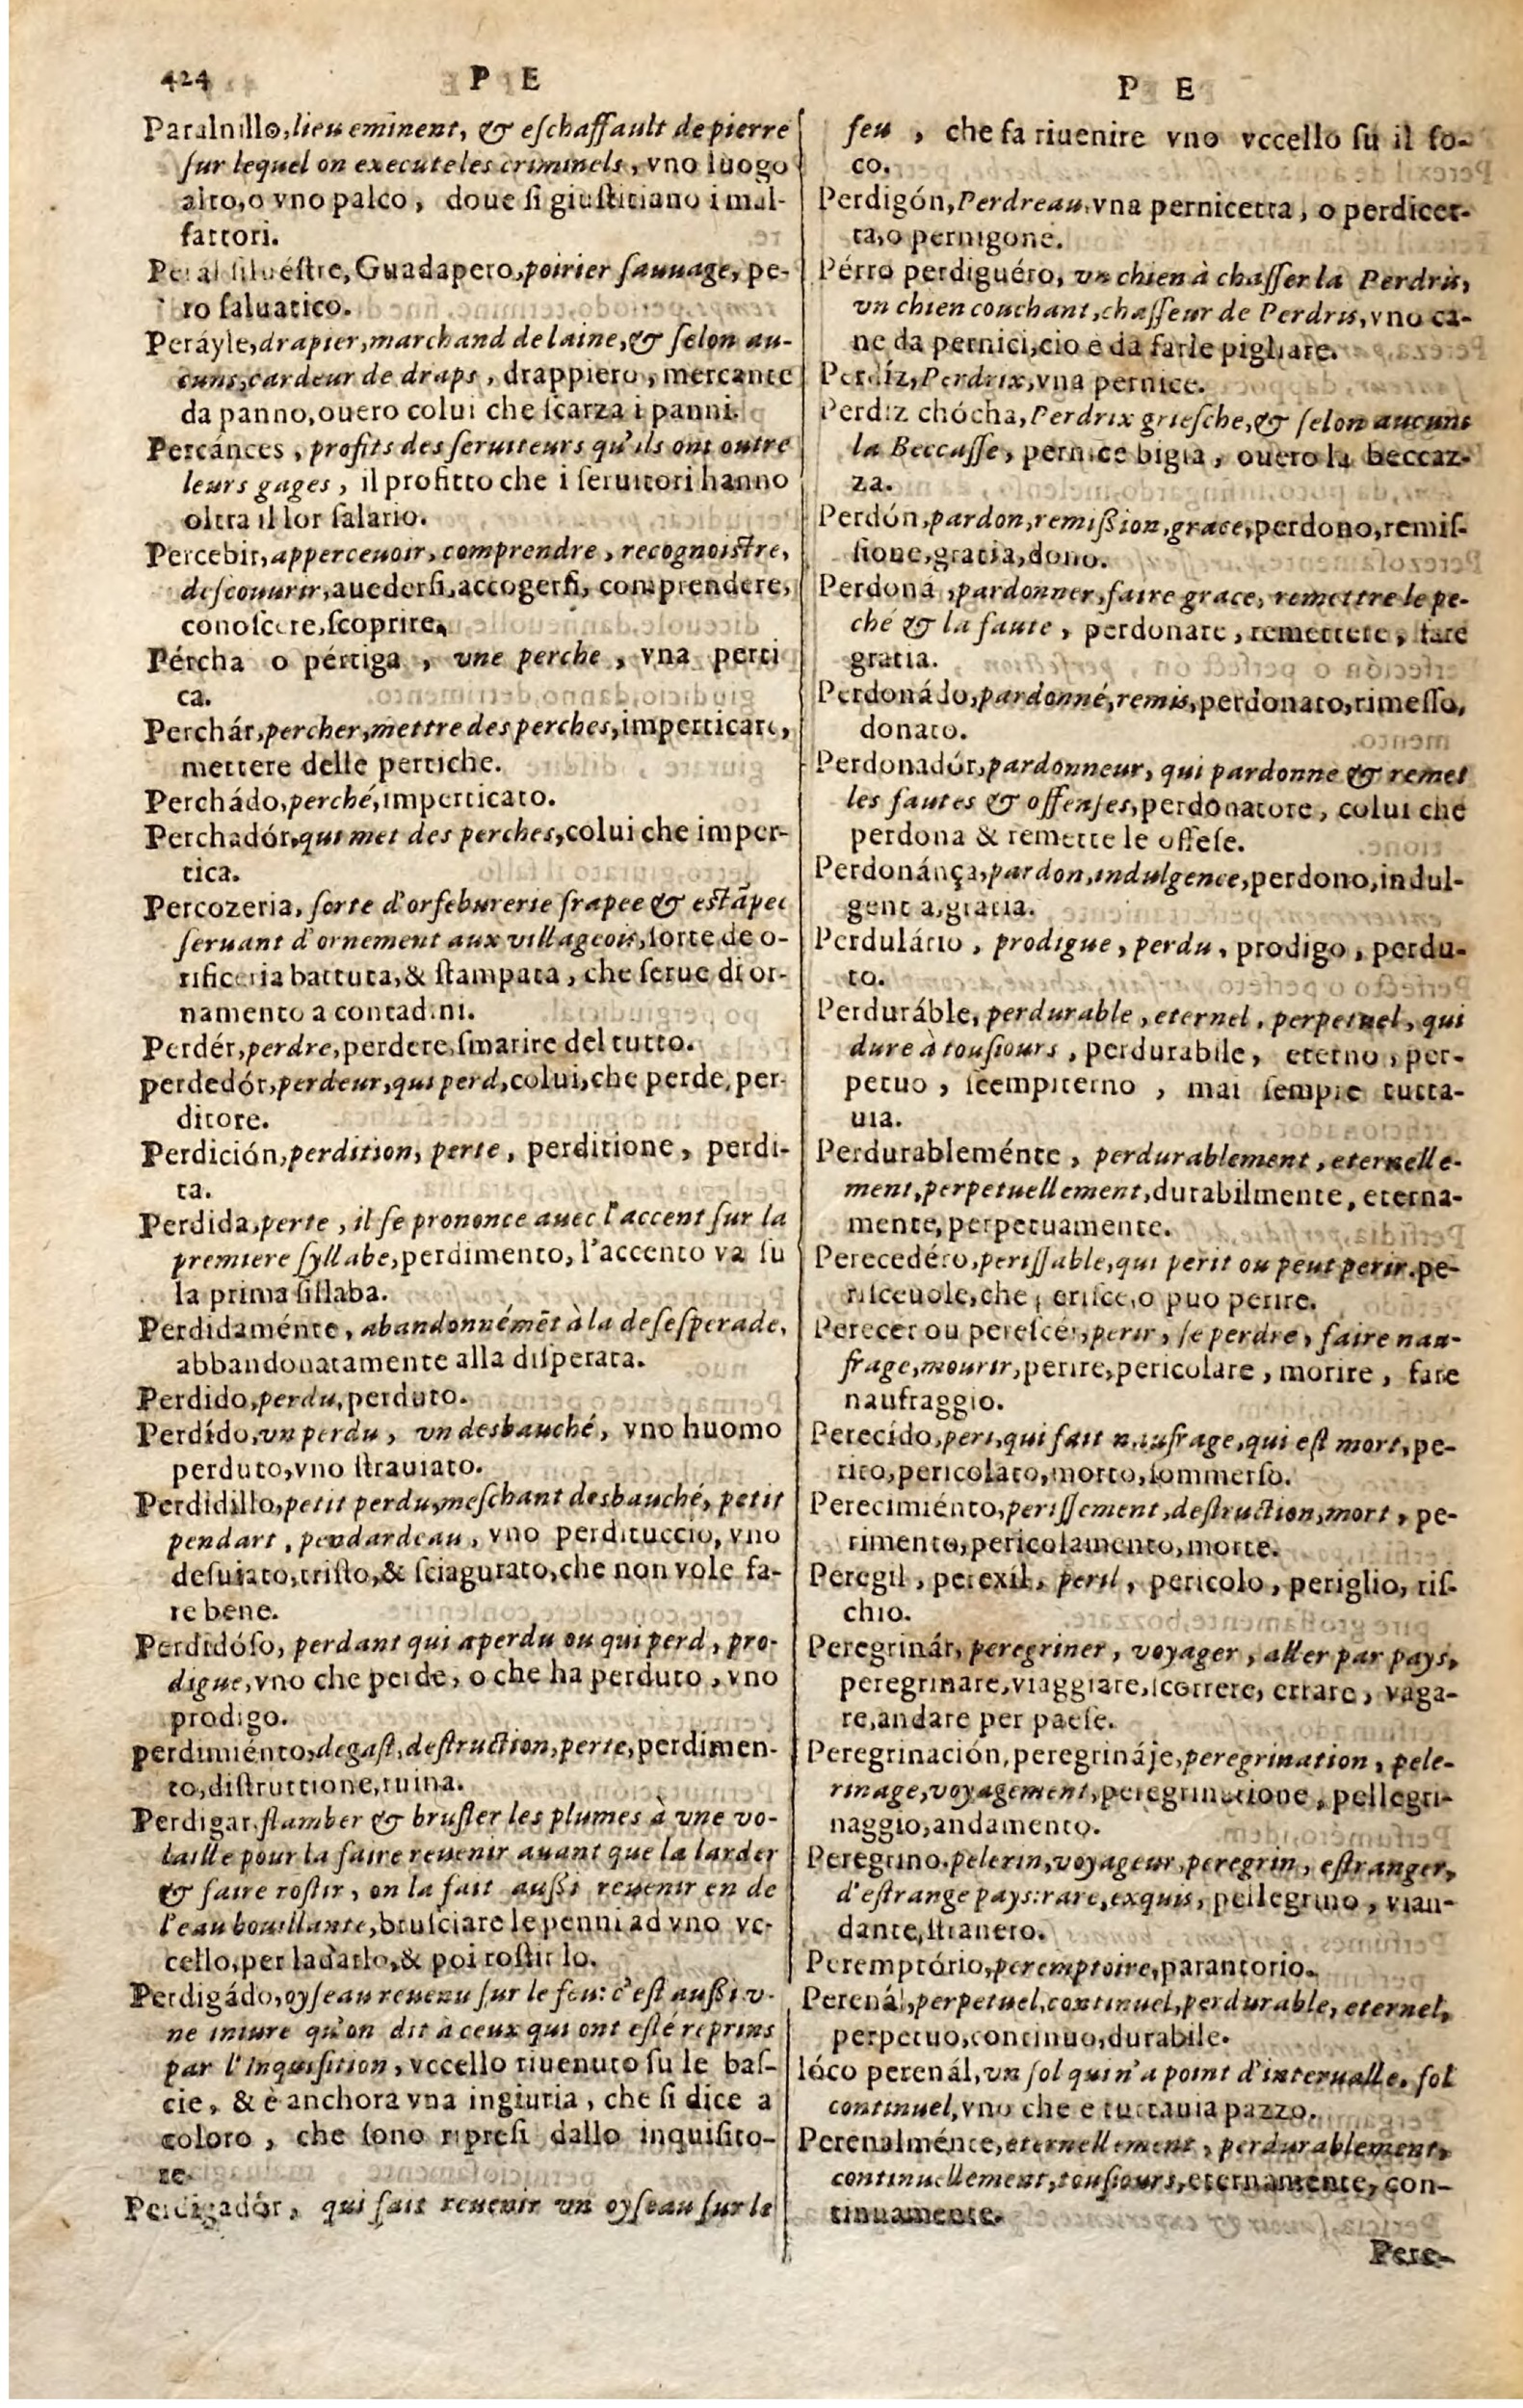 424
P E
Paralnillo, lieu eminent, & eſchaffault de pierre
ſur lequel on execute les criminels, vno luogo
alto, o vno palco, doue ſi giuſtitiano i mal-
fattori.
Peral ſilueſtre, Guadapero, poirier ſauuage, pe-
ro ſaluatico.
Peráyle, drapier, marchand de laine, & ſelon au-
cuns, cardeur de draps, drappiero, mercante
da panno, ouero colui che ſcarza i panni.
Percánces, profits des ſeruiteurs qu'ils ont outre
leurs gages, il profitto che i ſeruitori hanno
oltra il lor ſalario.
Percebir, apperceuoir, comprendre, recognoiſtre,
deſcouurir, auederſi, accogerſi, comprendere,
conoſcere, ſcoprire.
Pércha o pértiga, vne perche, vna perti
ca.
Perchár, percher, mettre des perches, imperticare,
mettere delle pertiche.
Perchádo, perché, imperticato.
Perchadór, qui met des perches, colui che imper-
tica.
Percozeria, ſorte d'orfeburerie frapee & eſtãpee
ſeruant d'ornement aux villageois, ſorte de o-
rificeria battuta, & ſtampata, che ſerue di or-
namento a contadini.
Perdér, perdre, perdere, ſmarire del tutto.
perdedór, perdeur, qui perd, colui, che perde, per-
ditore.
Perdición, perdition, perte, perditione, perdi-
ta.
Perdida, perte, il ſe prononce auec l'accent ſur la
premiere ſyllabe, perdimento, l'accento va ſu
la prima ſillaba.
Perdidaménte, abandonnémẽt à la deſeſperade,
abbandonatamente alla diſperata.
Perdido, perdu, perduto.
Perdído, vn perdu, vn desbauché, vno huomo
perduto, vno ſtrauiato.
Perdidillo, petit perdu, meſchant desbauché, petit
pendart, pendardeau, vno perdituccio, vno
deſuiato, triſto, & ſciagurato, che non vole fa-
re bene.
Perdidóſo, perdant qui a perdu ou qui perd, pro-
digue, vno che perde, o che ha perduto, vno
prodigo.
perdimiénto, degaſt, deſtruction, perte, perdimen-
to, diſtruttione, ruina.
Perdigar, flamber & bruſler les plumes à vne vo-
laille pour la faire reuenir auant que la larder
& faire roſtir, on la fait auſſi reuenir en de
l'eau bouillante, bruſciare le penni ad vno vc-
cello, per ladarlo, & poi roſtir lo.
Perdigádo, oyſeau reuenu ſur le feu: c'eſt auſſi v-
ne iniure qu'on dit à ceux qui ont eſté reprins
par l'Inquiſition, vccello riuenuto ſu le baſ-
cie, & è anchora vna ingiuria, che ſi dice a
coloro, che ſono ripreſi dallo inquiſito-
re.
Perdigadór, qui fait reuenir vn oyſeau ſur le
P E
feu, che fa riuenire vno vccello ſu il fo-
co.
Perdigón, Perdreau, vna pernicetta, o perdicet-
ta, o pernigone.
Pérro perdiguéro, vn chien à chaſſer la Perdris,
vn chien couchant, chaſſeur de Perdris, vno ca-
ne da pernici, cio e da farle pigliare.
Perdíz, Perdrix, vna pernice.
Perdiz chócha, Perdrix grieſche, & ſelon aucuns
la Beccaſſe, pernice bigia, ouero la beccaz-
za.
Perdón, pardon, remiſſion, grace, perdono, remiſ-
ſione, gratia, dono.
Perdona, pardonner, faire grace, remettre le pe-
ché & la faute, perdonare, remettere, fare
gratia.
Perdonádo, pardonné, remis, perdonato, rimeſſo,
donato.
Perdonadór, pardonneur, qui pardonne & remet
les fautes & offenſes, perdonatore, colui che
perdona & remette le offeſe.
Perdonánça, pardon, indulgence, perdono, indul-
gentia, gratia.
Perdulário, prodigue, perdu, prodigo, perdu-
to.
Perduráble, perdurable, eternel, perpetuel, qui
dure à touſiours, perdurabile, eterno, per-
petuo, ſcempiterno, mai ſempre tutta-
uia.
Perdurableménte, perdurablement, eternelle-
ment, perpetuellement, durabilmente, eterna-
mente, perpetuamente.
Perecedéro, periſſable, qui perit ou peut perir, pe-
riſceuole, che periſce, o puo perire.
Perecer ou pereſcér, perir, ſe perdre, faire nau-
frage, mourir, perire, pericolare, morire, fare
naufraggio.
Perecído, peri, qui fait naufrage, qui eſt mort, pe-
rito, pericolato, morto, ſommerſo.
Perecimiénto, periſſement, deſtruction, mort, pe-
rimento, pericolamento, morte.
Peregil, perexil, peril, pericolo, periglio, riſ-
chio.
Peregrinár, peregriner, voyager, aller par pays,
peregrinare, viaggiare, ſcorrere, errare, vaga-
re, andare per paeſe.
Peregrinación, peregrináje, peregrination, pele-
rinage, voyagement, peregrinatione, pellegri-
naggio, andamento.
Peregrino. pelerin, voyageur, peregrin, eſtranger,
d'eſtrange pays: rare, exquis, pellegrino, vian-
dante, ſtranero.
Peremptório, peremptoire, parantorio.
Perenál, perpetuel, continuel, perdurable, eternel,
perpetuo, continuo, durabile.
lóco perenál, vn fol qui n'a point d'interualle. fol
continuel, vno che e tuttauia pazzo.
Perenalménte, eternellement, perdurablement,
continuellement, touſiours, eternamente, con-
tinuamente.
Pere-